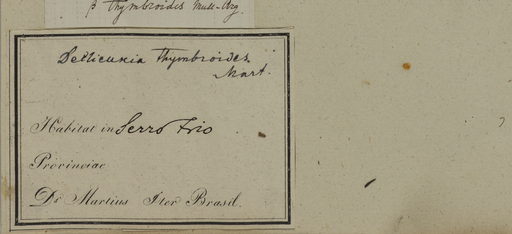 β thymbroides Muell-Arg.
thymbroides
Mart.
Habitat in Serro Frio
Provinciae
Dr Martius Iter Brasil.